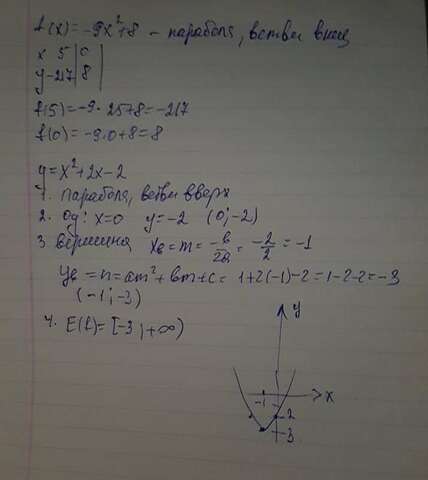 f(x)=-9x²+8 - парабола, ветви вниз
x 5 | 0
y -217 | 8
f(5)=-9·25+8=-217
f(0)=-9·0+8=8
y=x²+2x-2
1. парабола, ветви вверх
2. Oy: x=0 y=-2 (0;-2)
3. вершина xв=m=-b/2a=-2/2=-1
yв=n=am²+bm+c=1+2(-1)-2=1-2-2=-3
(-1;-3)
4. E(f)=[-3;+∞)
y
-1 x
-2
-3